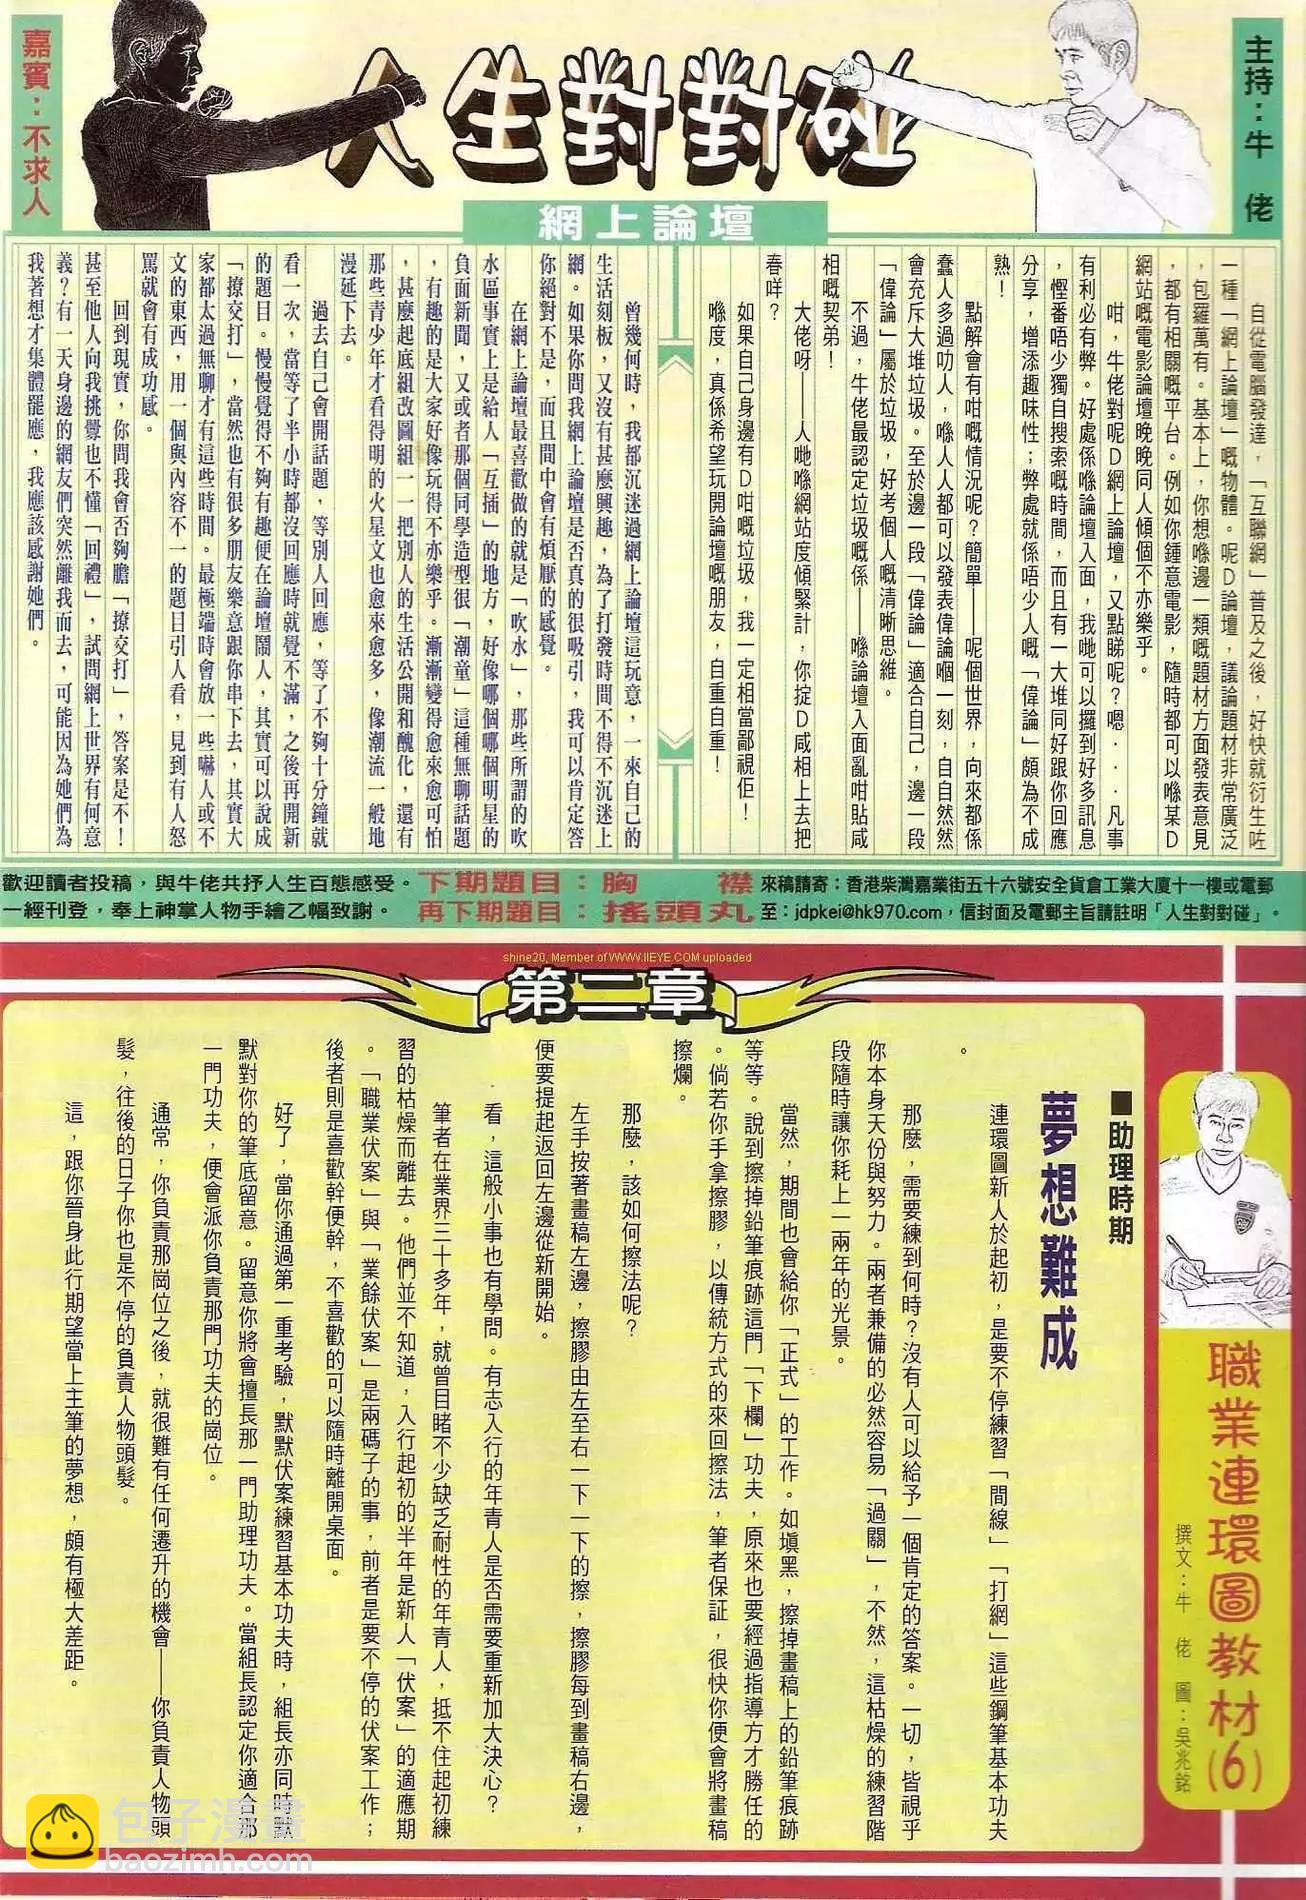 人生對對碰
主持：牛　佬
嘉賓：不求人
網上論壇
　　自從電腦發達，「互聯網」普及之後，好快就衍生咗
一種「網上論壇」嘅物體。呢Ｄ論壇，議論題材非常廣泛
，包羅萬有。基本上，你想喺邊一類嘅題材方面發表意見
，都有相關嘅平台。例如你鍾意電影，隨時都可以喺某Ｄ
網站嘅電影論壇晚晚同人傾個不亦樂乎。
　　咁，牛佬對呢Ｄ網上論壇，又點睇呢？嗯．．．凡事
有利必有弊。好處係喺論壇入面，我哋可以攞到好多訊息
，慳番唔少獨自搜索嘅時間，而且有一大堆同好跟你回應
分享，增添趣味性；弊處就係唔少人嘅「偉論」頗為不成
熟！
　　點解會有咁嘅情況呢？簡單——呢個世界，向來都係
蠢人多過叻人，喺人人都可以發表偉論嗰一刻，自自然然
會充斥大堆垃圾。至於邊一段「偉論」適合自己，邊一段
「偉論」屬於垃圾，好考個人嘅清晰思維。
　　不過，牛佬最認定垃圾嘅係——喺論壇入面亂咁貼咸
相嘅契弟！
　　大佬呀！——人哋喺網站度傾緊計，你掟Ｄ咸相上去把
春咩？
　　如果自己身邊有Ｄ咁嘅垃圾，我一定相當鄙視佢！
　　喺度，真係希望玩開論壇嘅朋友，自重自重！
　　曾幾何時，我都沉迷過網上論壇這玩意，一來自己的
生活刻板，又沒有甚麼興趣，為了打發時間不得不沉迷上
網。如果你問我網上論壇是否真的很吸引，我可以肯定答
你絕對不是，而且間中會有煩厭的感覺。
　　在網上論壇最喜歡做的就是「吹水」，那些所謂的吹
水區事實上是給人「互插」的地方，好像哪個哪個明星的
負面新聞，又或者那個同學造型很「潮童」這種無聊話題
，有趣的是大家好像玩得不亦樂乎。漸漸變得愈來愈可怕
，甚麼起底組改圖組一一把別人的生活公開和醜化，還有
那些青少年才看得明的火星文也愈來愈多，像潮流一般地
漫延下去。
　　過去自己會開話題，等別人回應，等了不夠十分鐘就
看一次，當等了半小時都沒回應時就覺不滿，之後再開新
的題目。慢慢覺得不夠有趣便在論壇鬧人，其實可以說成
「撩交打」，當然也有很多朋友樂意跟你串下去，其實大
家都太過無聊才有這些時間。最極端時會放一些嚇人或不
文的東西，用一個與內容不一的題目引人看，見到有人怒
罵就會有成功感。
　　回到現實，你問我會否夠膽「撩交打」，答案是不！
甚至他人向我挑釁也不懂「回禮」，試問網上世界有何意
義？有一天身邊的網友們突然離我而去，可能因為她們為
我著想才集體罷應，我應該感謝她們。
歡迎讀者投稿，與牛佬共抒人生百態感受。
一經刊登，奉上神掌人物手繪乙幅致謝。
下期題目：胸　　襟
再下期題目：搖頭丸
來稿請寄：香港柴灣嘉業街五十六號安全貨倉工業大廈十一樓或電郵
至：jdpkei@hk970.com，信封面及電郵主旨請註明「人生對對碰」。
shine20, Member of WWW.IIEYE.COM uploaded
第二章
職業連環圖教材(6)
撰文：牛　佬　圖：吳兆銘
■助理時期
夢想難成
　　連環圖新人於起初，是要不停練習「間線」「打網」這些鋼筆基本功夫
。
　　那麼，需要練到何時？沒有人可以給予一個肯定的答案。一切，皆視乎
你本身天份與努力。兩者兼備的必然容易「過關」，不然，這枯燥的練習階
段隨時讓你耗上一兩年的光景。
　　當然，期間也會給你「正式」的工作。如塡黑，擦掉畫稿上的鉛筆痕跡
等等。說到擦掉鉛筆痕跡這門「下欄」功夫，原來也要經過指導方才勝任的
。倘若你手拿擦膠，以傳統方式的來回擦法，筆者保証，很快你便會將畫稿
擦爛。
　　那麼，該如何擦法呢？
　　左手按著畫稿左邊，擦膠由左至右一下一下的擦，擦膠每到畫稿右邊，
便要提起返回左邊從新開始。
　　看，這般小事也有學問。有志入行的年青人是否需要重新加大決心？
　　筆者在業界三十多年，就曾目睹不少缺乏耐性的年青人，抵不住起初練
習的枯燥而離去。他們並不知道，入行起初的半年是新人「伏案」的適應期
。「職業伏案」與「業餘伏案」是兩碼子的事，前者是要不停的伏案工作；
後者則是喜歡幹便幹，不喜歡的可以隨時離開桌面。
　　好了，當你通過第一重考驗，默默伏案練習基本功夫時，組長亦同時默
默對你的筆底留意。留意你將會擅長那一門助理功夫。當組長認定你適合那
一門功夫，便會派你負責那門功夫的崗位。
　　通常，你負責那崗位之後，就很難有任何遷升的機會——你負責人物頭
髮，往後的日子你也是不停的負責人物頭髮。
　　這，跟你晉身此行期望當上主筆的夢想，頗有極大差距。
包子漫畫
baozimh.com